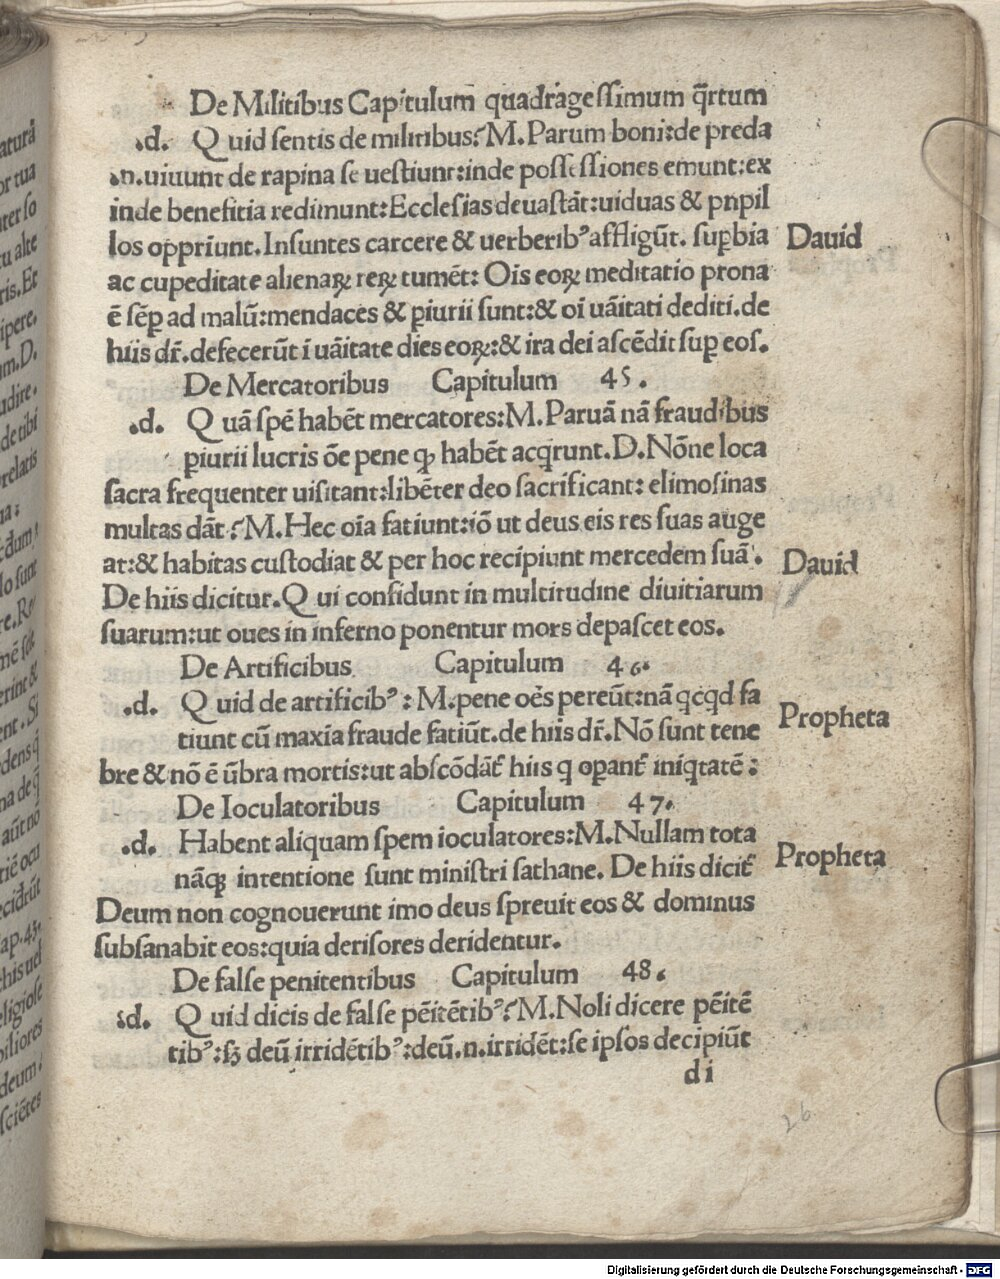 De Militibus Capitulum quadragessimum q̄rtum
.d. Quid sentis de militibus? M. Parum boni: de preda
.n. uiuunt de rapina se uestiunt: inde possessiones emunt: ex
inde benefitia redimunt: Ecclesias deuastāt: uiduas & pnpil
los oppriunt. Insuntes carcere & uerberibꝰ affligūt. suꝑbia
ac cupeditate alienaꝝ reꝝ tumēt: Oīs eoꝝ meditatio prona
ē sēꝑ ad malū: mendaces & ꝑiurii sunt: & oī uāitati dediti. de
hiis dr̄. defecerūt ī uāitate dies eoꝝ: & ira dei ascēdit suꝑ eos.
David
De Mercatoribus Capitulum 45.
.d. Quā spē habēt mercatores: M. Paruā nā fraudibus
ꝑiurii lucris ōe pene ꝙ habēt acq̄runt. D. Nōne loca
sacra frequenter uisitant: libēter deo sacrificant: elimosinas
multas dāt? M. Hec oīa fatiunt: iō ut deus eis res suas auge
at: & habitas custodiat & per hoc recipiunt mercedem suā.
De hiis dicitur. Qui confidunt in multitudine diuitiarum
suarum: ut oues in inferno ponentur mors depascet eos.
David
De Artificibus Capitulum 46.
.d. Quid de artificibꝰ: M. pene oēs pereūt: nā qcqd fa
tiunt cū maxīa fraude fatiūt. de hiis dr̄. Nō sunt tene
bre & nō ē ūbra mortis: ut abscōdāt̄ hiis q oꝑant̄ iniqtatē:
Propheta
De Ioculatoribus Capitulum 47.
.d. Habent aliquam spem ioculatores: M. Nullam tota
nāqꝫ intentione sunt ministri sathane. De hiis dicit̄
Deum non cognouerunt imo deus spreuit eos & dominus
subsanabit eos: quia derisores deridentur.
Propheta
De false penitentibus Capitulum 48.
.d. Quid dicis de false pēitētibꝰ? M. Noli dicere pēitē
tibꝰ: sꝫ deū irridētibꝰ: deū .n. irridēt: se ipsos decipiūt
di
26
Digitalisierung gefördert durch die Deutsche Forschungsgemeinschaft - DFG